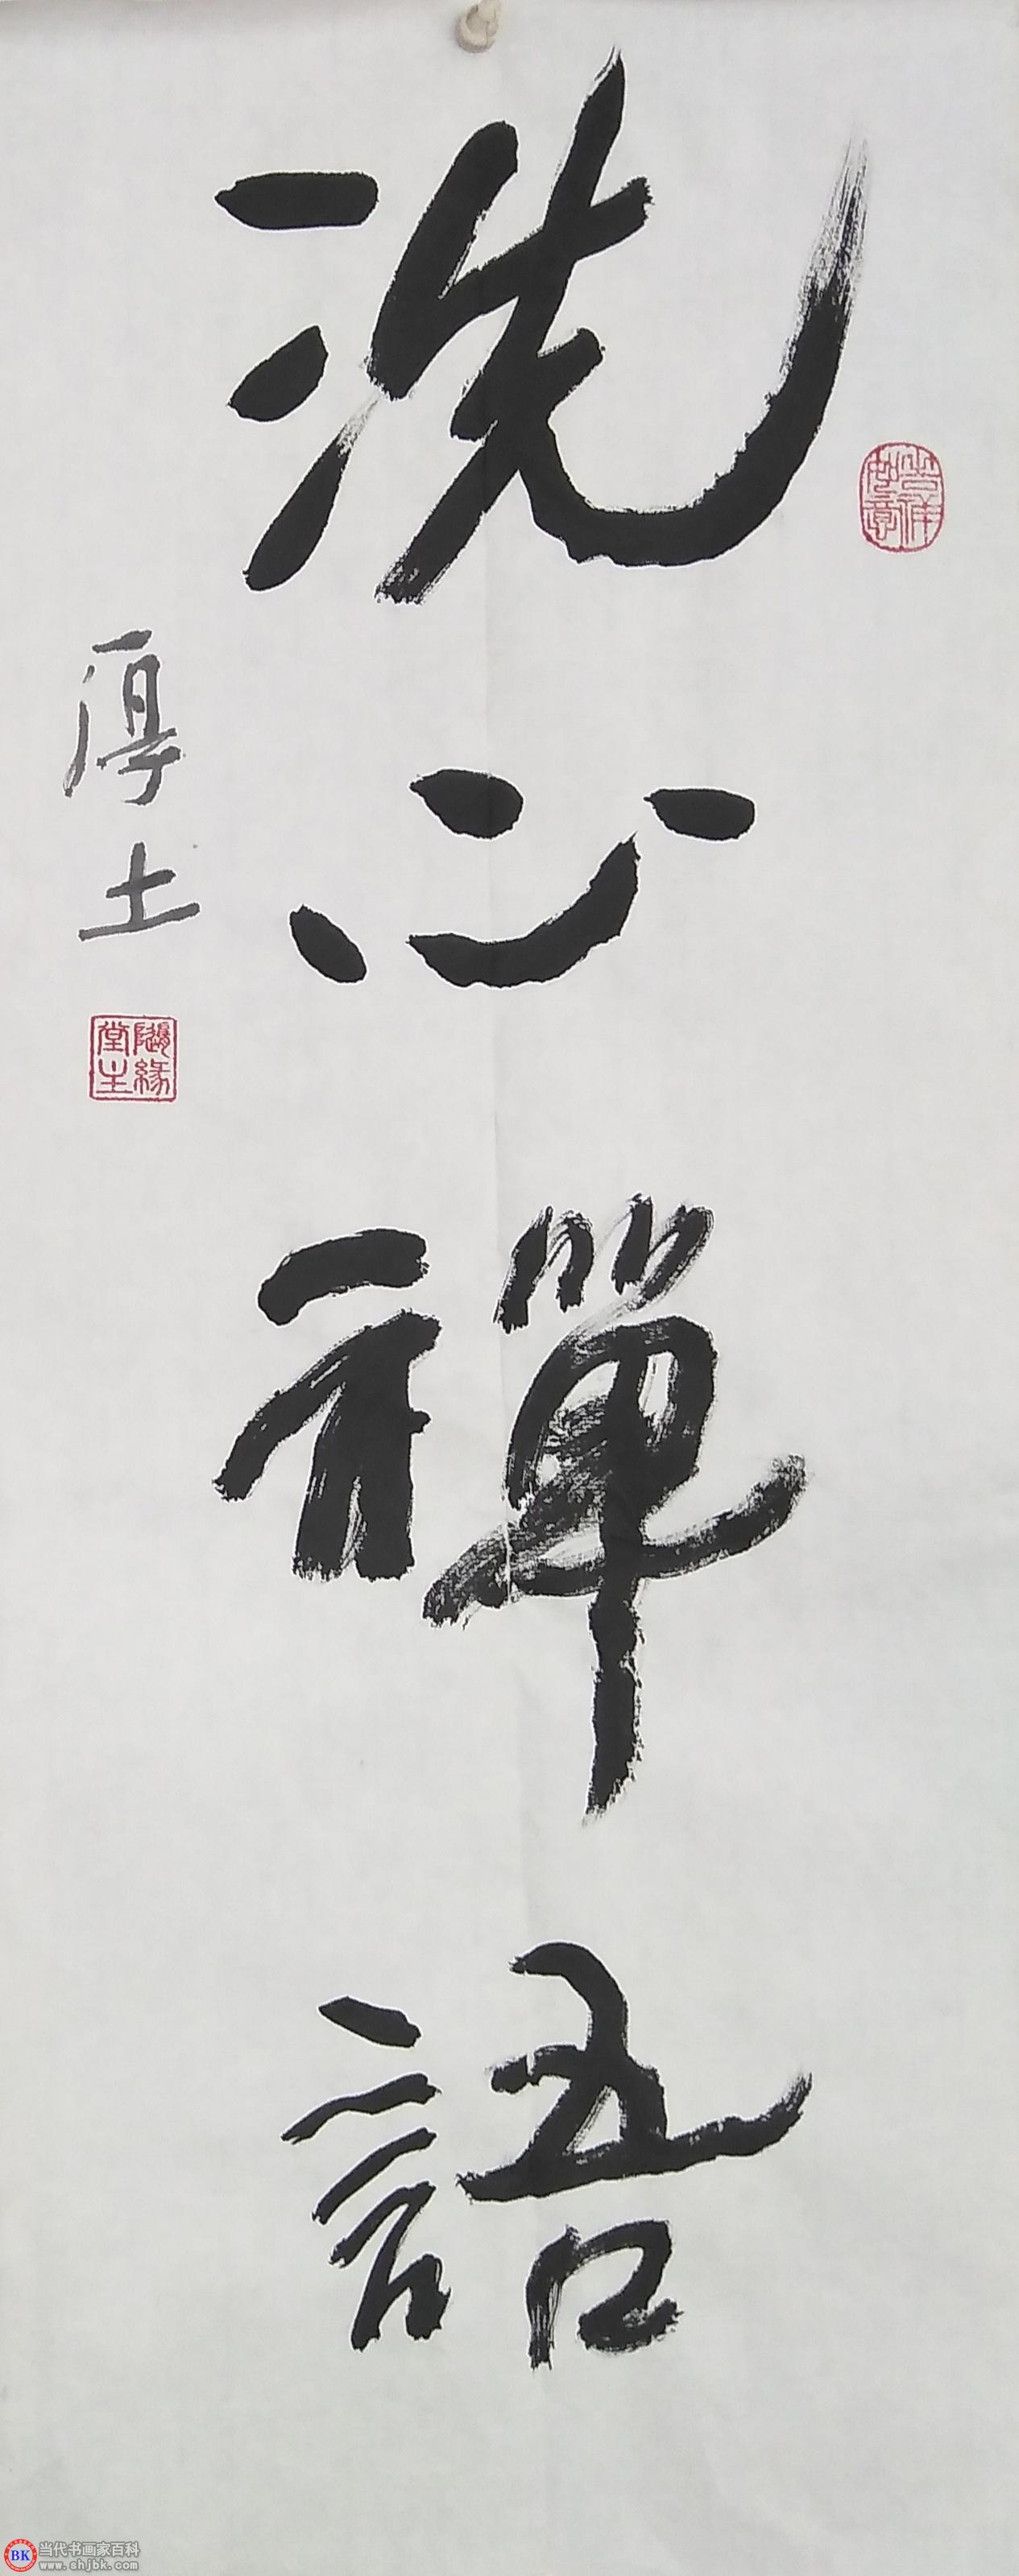 洗心禅語
厚土
隨緣堂主
BK 当代书画家百科
www.shjbk.com